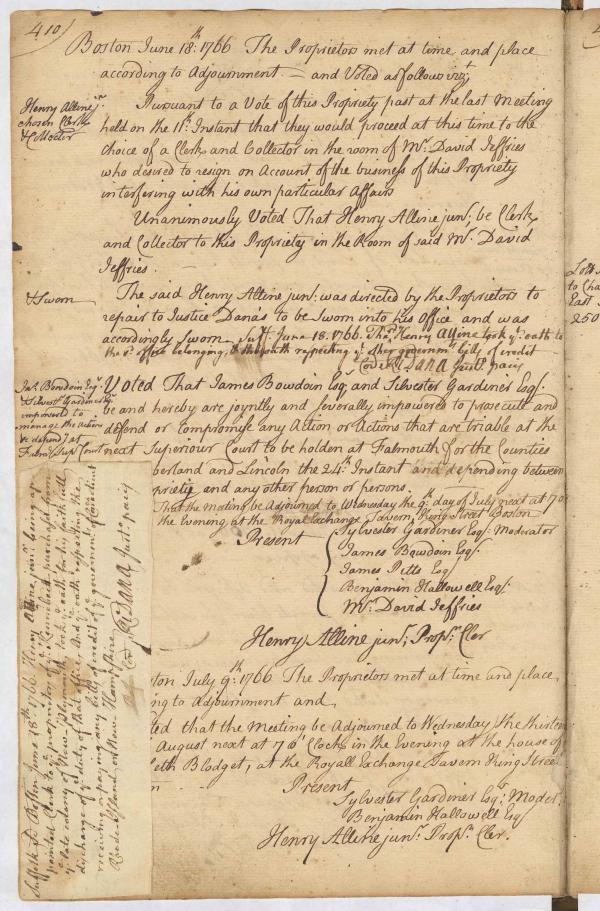 410)
Boston June 18th. 1766 The Proprietors met at time and place
according to Adjournment — and Voted as following vizt
Henry Alline junr.
chosen Clerk
& Collector
Pursuant to a Vote of this Propriety past at the last Meeting
held on the 11th. Instant that they would proceed at this time to the
Choice of a Clerk and Collector in the room of Mr. David Jeffries
who desired to resign on Account of the business of this Propriety
interfering with his own particular Affairs
Unanimously Voted That Henry Alline junr. be Clerk
and Collector to this Propriety in the Room of said Mr. David
Jeffries.
& Sworn
The said Henry Alline junr. was directed by the Proprietors to
repair to Justice Dana's to be Sworn into his Office and was
accordingly Sworn Suff. June 18. 1766. The sd. Henry Alline took ye. oath to
the sd. office belonging, & the oath respecting ye. other governmts. bills of credit
Cor. R. DANA Just. pacis
Jas. Bowdoin Esqr.
& Silvesr. Gardiner Esqr.
impowered to
manage the Action
depend'g at
Falmo. Supr. Court
Voted That James Bowdoin Esqr. and Silvester Gardiner Esqr.
be and hereby are joyntly and severally impowered to prosecute and
defend or Compromise any Action or Actions that are triable at the
next Superiour Court to be holden at Falmouth for the Counties
berland and Lincoln the 24th. Instant and depending between
priety and any other person or persons.
That the meeting be adjourned to Wednesday the 9th. day of July next at 7 o
the Evening, at the Royal Exchange Tavern King Street Boston
Present
Sylvester Gardiner Esqr. Moderator
James Bowdoin Esqr.
James Pitts Esqr.
Benjamin Hallowell Esqr.
Mr. David Jeffries
Henry Alline junr. Propr. Cler
ton July 9th. 1766 The Proprietors met at time and place,
ing to Adjournment and
ted that the Meeting be Adjourned to Wednesday the thirteen
August next at 7 o'Clock in the Evening at the house of
eth Blodget, at the Royall Exchange Tavern King Street
n
Present
Sylvester Gardiner Esqr. Moder.
Benjamin Hallowell Esqr
Henry Alline junr. Propr. Cler.
Suffolk Ss. Boston June 18th. 1766. Henry Alline, junr. being ap
pointed Clerk to ye. proprietors of ye. Kennebeck purchase from
ye. late colony of New Plymouth took ye. oath for his faithfull
discharge of ye. duty of that office; And ye. oath respecting the
receiving or paying any bills of credit of ye. governments of Connecticut
Rhode Island, or New Hampshire
Cor. R. DANA Justs. pacis
Lotts
to Cha
East
250